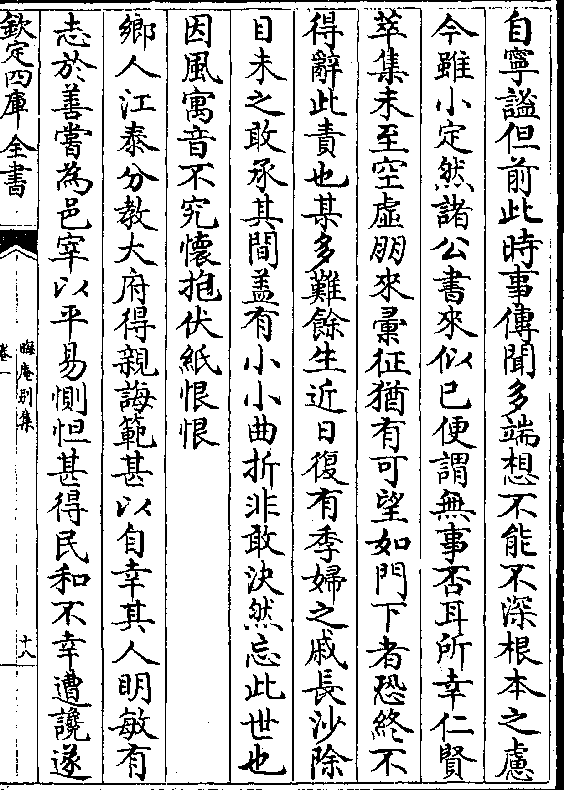 自寧謐但前此時事傳聞多端想不能不深根本之慮
今雖小定然諸公書來似已便謂無事否耳所幸仁賢
萃集未至空虛朋來彚征猶有可望如門下者恐終不
得辭此責也某多難餘生近日復有季婦之戚長沙除
目未之敢承其間盖有小小曲折非敢決然忘此世也
因風寓音不究懷抱伏紙恨恨
鄉人江泰分教大府得親誨範甚以自幸其人明敏有
志於善嘗為邑宰以平易惻怛甚得民和不幸遭讒遂
欽定四庫全書
晦庵别集
卷一
十八